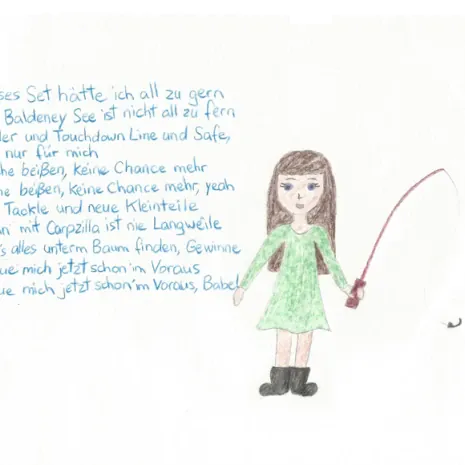 ses Set hätte ich all zu gern
Baldeney See ist nicht all zu fern
der und Touchdown Line und Safe,
nur für mich
che beißen, keine Chance mehr
he beißen, keine Chance mehr, yeah
Tackle und neue Kleinteile
n mit Carpzilla ist nie Langweile
s alles unterm Baum finden, Gewinne
ue mich jetzt schon im Voraus
ue mich jetzt schon'im Voraus, Babe!